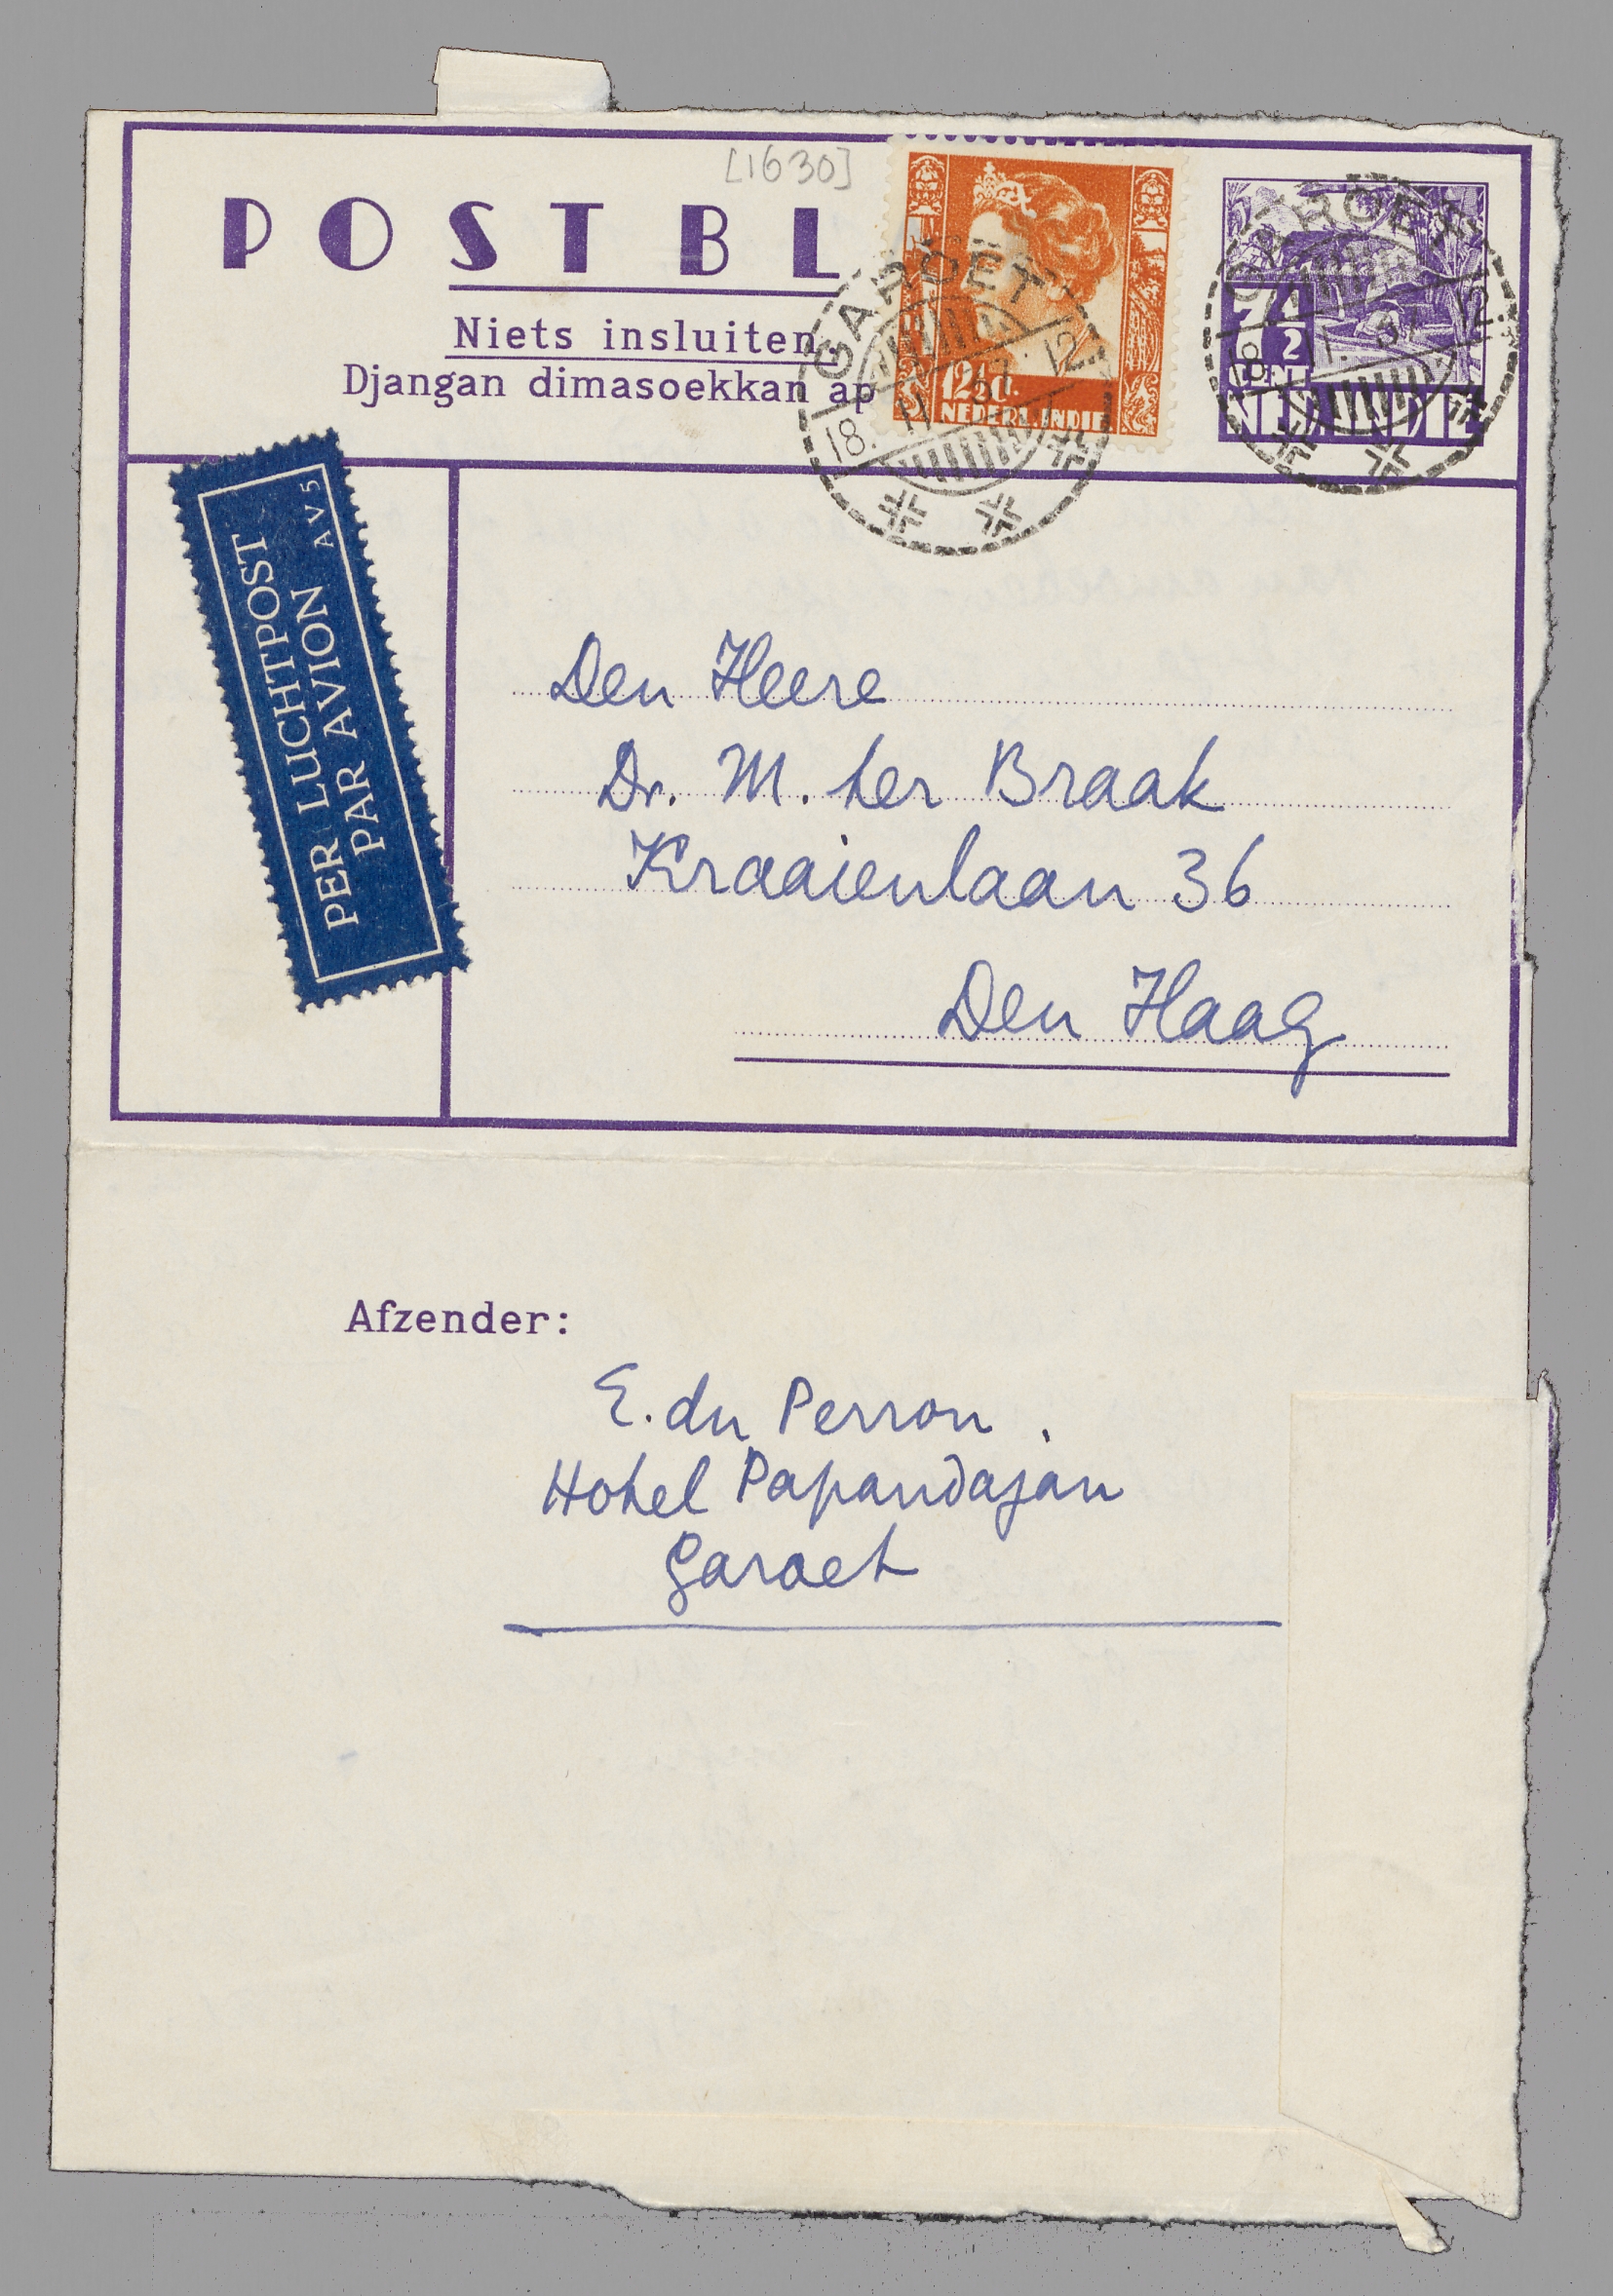 [1630]
POSTBL
Niets insluiten.
Djangan dimasoekkan ap
12½ ct.
NEDERL. INDIE
7½
CENT
NED. INDIE
GAROET
18. 11. 37. 12
GAROET
18. 11. 37. 12
PER LUCHTPOST
PAR AVION
AV5
Den Heere
Dr. M. ter Braak
Kraaienlaan 36
Den Haag
Afzender:
E. du Perron.
Hotel Papandajan
Garoet